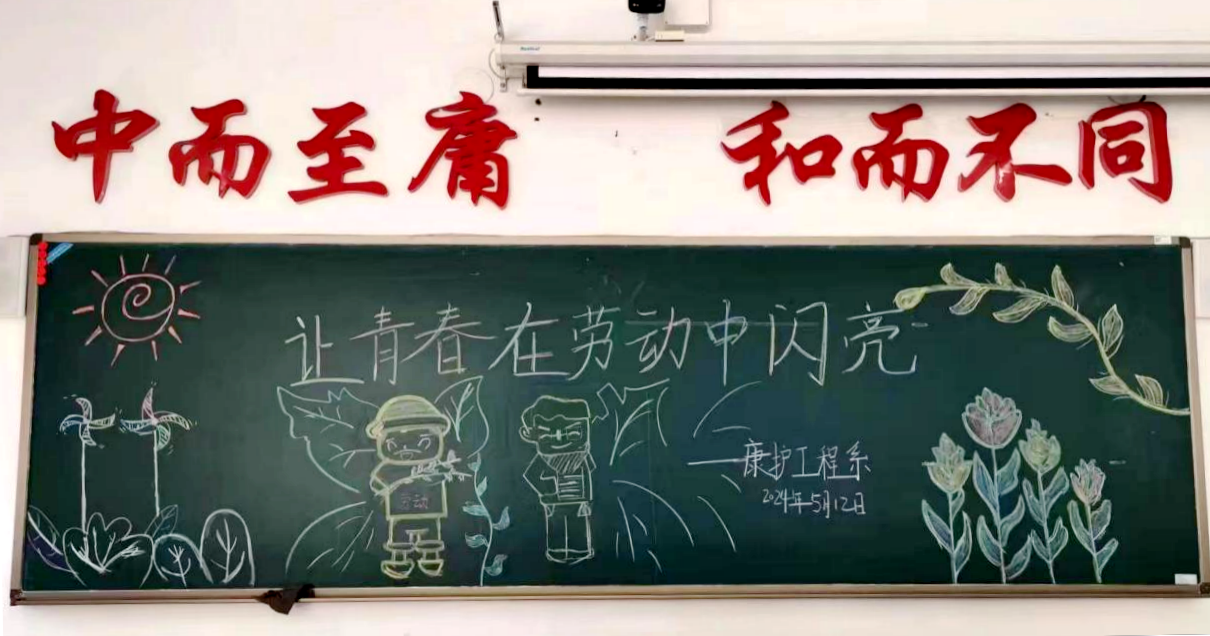 中而至庸 和而不同
让青春在劳动中闪亮
劳动
——康护工程系
2024年5月12日